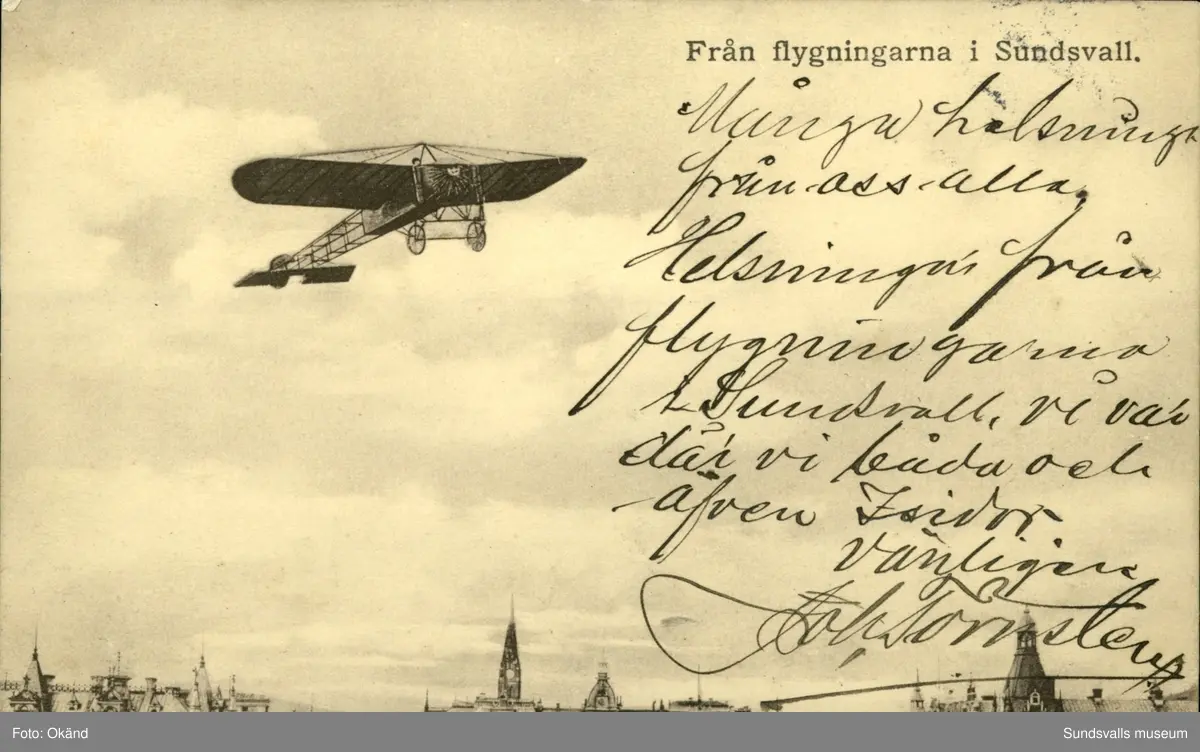 Från flygningarna i Sundsvall.
Många helsninga
från oss alla.
Helsningar från
flygningarna
i Sundsvall, vi var
där vi båda och
äfven Isidor
vänligen
Foto: Okänd
Sundsvalls museum